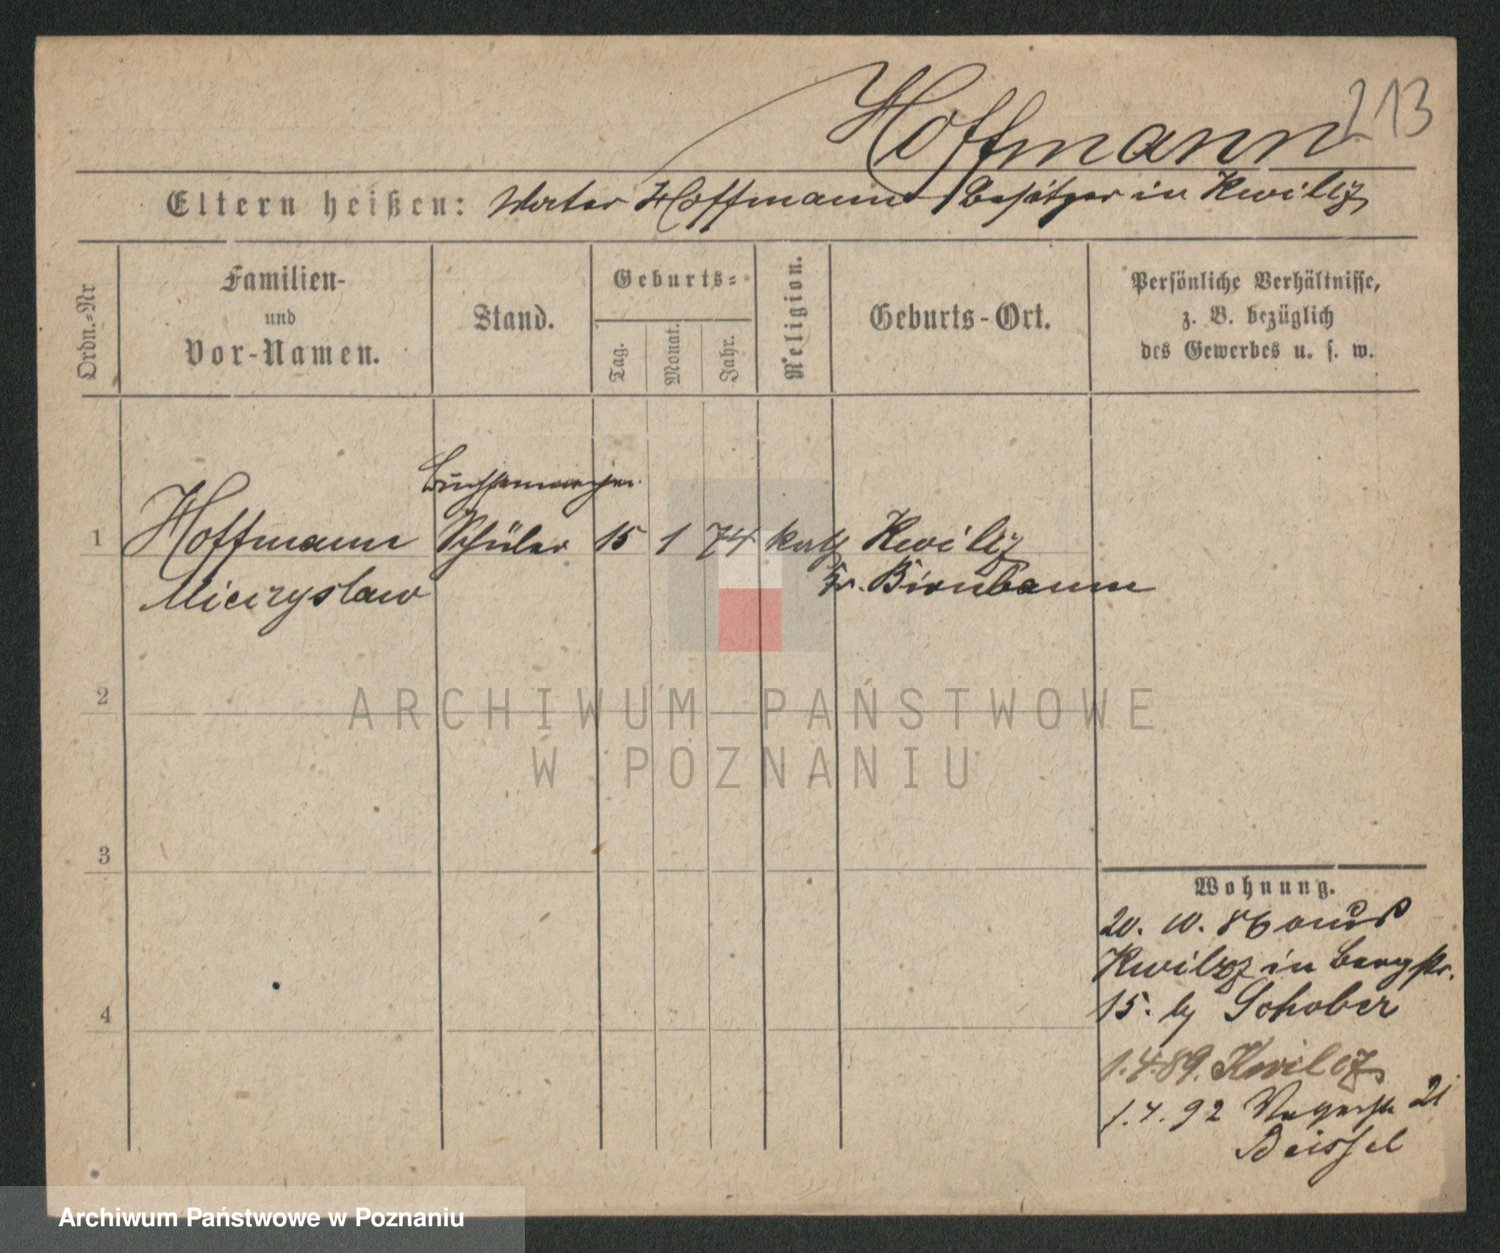 Hoffmann 213
Eltern heißen: Vater Hoffmann Besitzer in Kwilcz
Ordn.-Nr
Familien-
und
Vor-Namen.
Stand.
Geburts-
Tag.
Monat.
Jahr.
Religion.
Geburts-Ort.
Persönliche Verhältnisse,
z. B. bezüglich
des Gewerbes u. s. w.
Büchsenmacher
1 Hoffmann Schüler 15 1 74 kath Kwilcz
Mieczyslaw Kr. Birnbaum
2
ARCHIWUM PAŃSTWOWE
W POZNANIU
3
Wohnung.
20. 10. 86 aus
Kwilcz in Bergstr.
15. by Schober
4
1.4.89. Kwilcz
1.4.92 21
Beissel
Archiwum Państwowe w Poznaniu